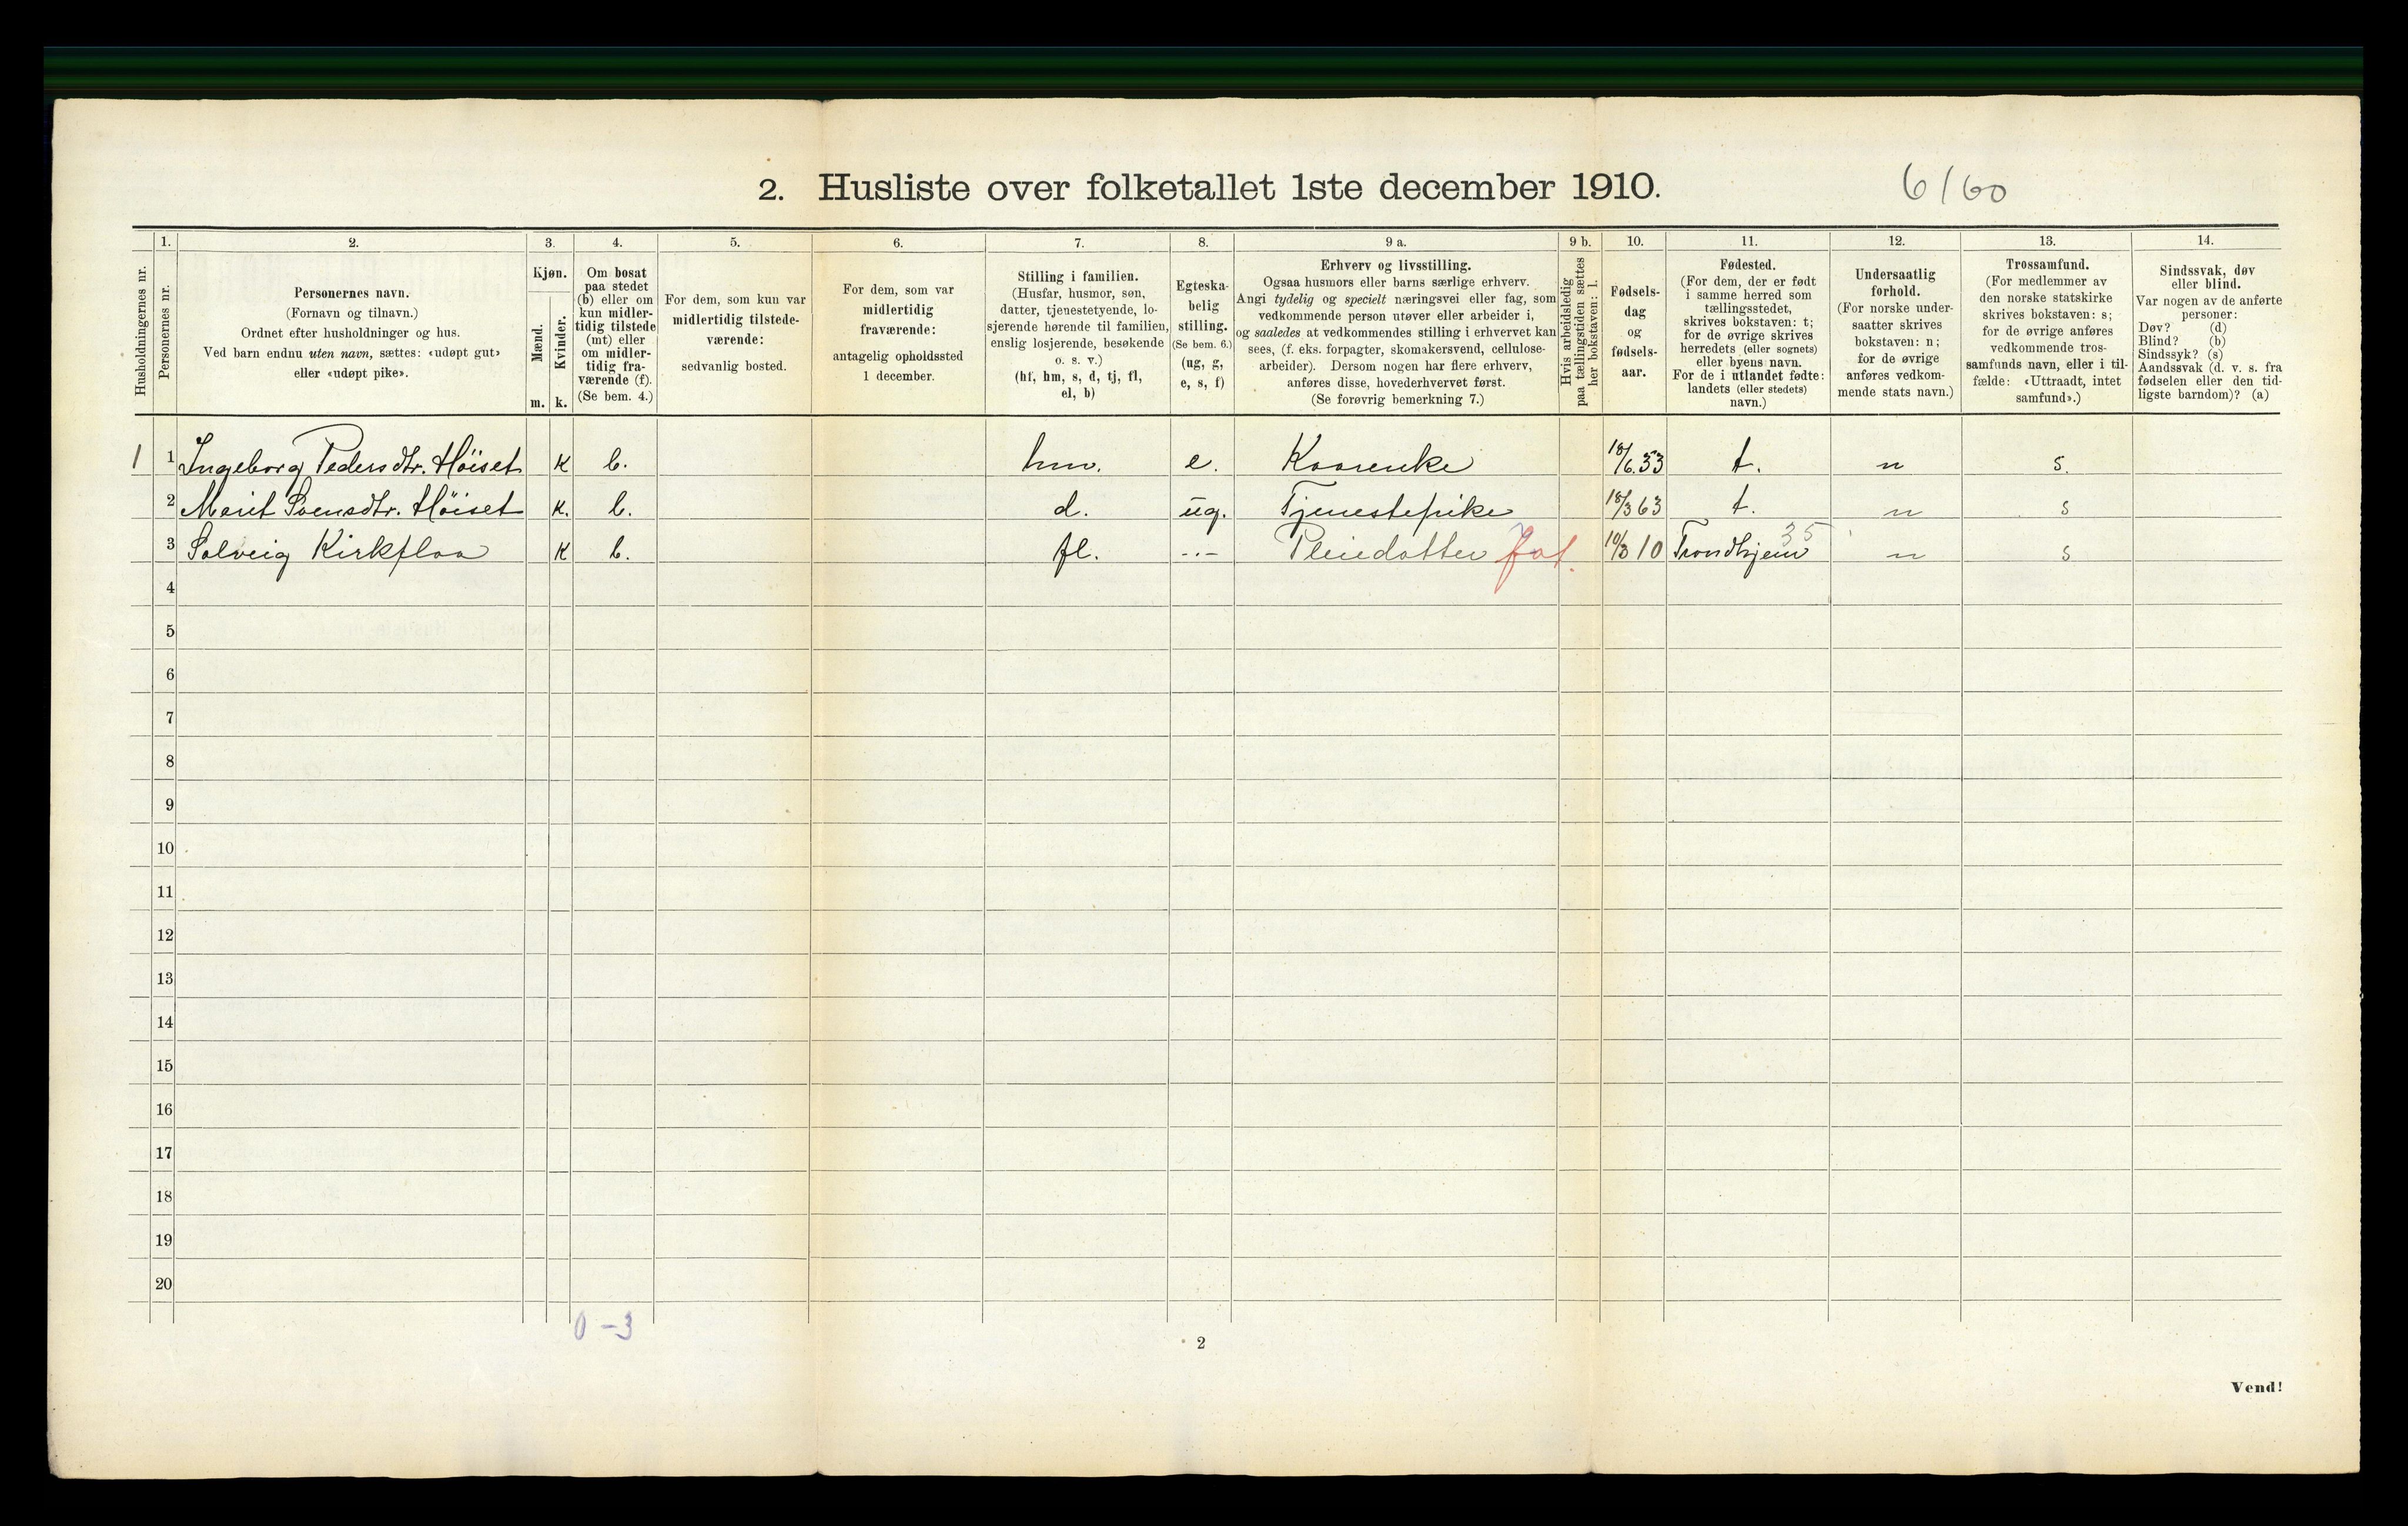 2. Husliste over folketallet 1ste december 1910.
6/60
1. 2. 3. 4. 5. 6. 7. 8. 9 a. 9 b. 10. 11. 12. 13. 14.
Husholdningernes nr.
Personernes nr.
Personernes navn.
(Fornavn og tilnavn.)
Ordnet efter husholdninger og hus.
Ved barn endnu uten navn, sættes: «udøpt gut»
eller «udøpt pike».
Kjøn.
Mænd.
Kvinder.
m. k.
Om bosat
paa stedet
(b) eller om
kun midler-
tidig tilstede
(mt) eller
om midler-
tidig fra-
værende (f).
(Se bem. 4.)
For dem, som kun var
midlertidig tilstede-
værende:
sedvanlig bosted.
For dem, som var
midlertidig
fraværende:
antagelig opholdssted
1 december.
Stilling i familien.
(Husfar, husmor, søn,
datter, tjenestetyende, lo-
sjerende hørende til familien,
enslig losjerende, besøkende
o. s. v.)
(hf, hm, s, d, tj, fl,
el, b)
Egteska-
belig
stilling.
(Se bem. 6.)
(ug, g,
e, s, f)
Erhverv og livsstilling.
Ogsaa husmors eller barns særlige erhverv.
Angi tydelig og specielt næringsvei eller fag, som
vedkommende person utøver eller arbeider i,
og saaledes at vedkommendes stilling i erhvervet kan
sees, (f. eks. forpagter, skomakersvend, cellulose-
arbeider). Dersom nogen har flere erhverv,
anføres disse, hovederhvervet først.
(Se forøvrig bemerkning 7.)
Hvis arbeidsledig
paa tællingstiden sættes
her bokstaven: l.
Fødsels-
dag
og
fødsels-
aar.
Fødested.
(For dem, der er født
i samme herred som
tællingsstedet,
skrives bokstaven: t;
for de øvrige skrives
herredets (eller sognets)
eller byens navn.
For de i utlandet fødte:
landets (eller stedets)
navn.)
Undersaatlig
forhold.
(For norske under-
saatter skrives
bokstaven: n;
for de øvrige
anføres vedkom-
mende stats navn.)
Trossamfund.
(For medlemmer av
den norske statskirke
skrives bokstaven: s;
for de øvrige anføres
vedkommende tros-
samfunds navn, eller i til-
fælde: «Uttraadt, intet
samfund».)
Sindssvak, døv
eller blind.
Var nogen av de anførte
personer:
Døv? (d)
Blind? (b)
Sindssyk? (s)
Aandssvak (d. v. s. fra
fødselen eller den tid-
ligste barndom)? (a)
1 1 Ingeborg Pedersdtr. Höiset K b. hm. e. Kaarenke 18/6.53 t. n s.
2 Marit Svensdtr. Höiset K. b. d. ug. Tjenestepike 18/3 63 t. n s
3 Solveig Kirkflaa K b. fl. -"- Pleiedatter 10/3 10 Trondhjem 35 n s
4
5
6
7
8
9
10
11
12
13
14
15
16
17
18
19
20
0 - 3
2
Vend!